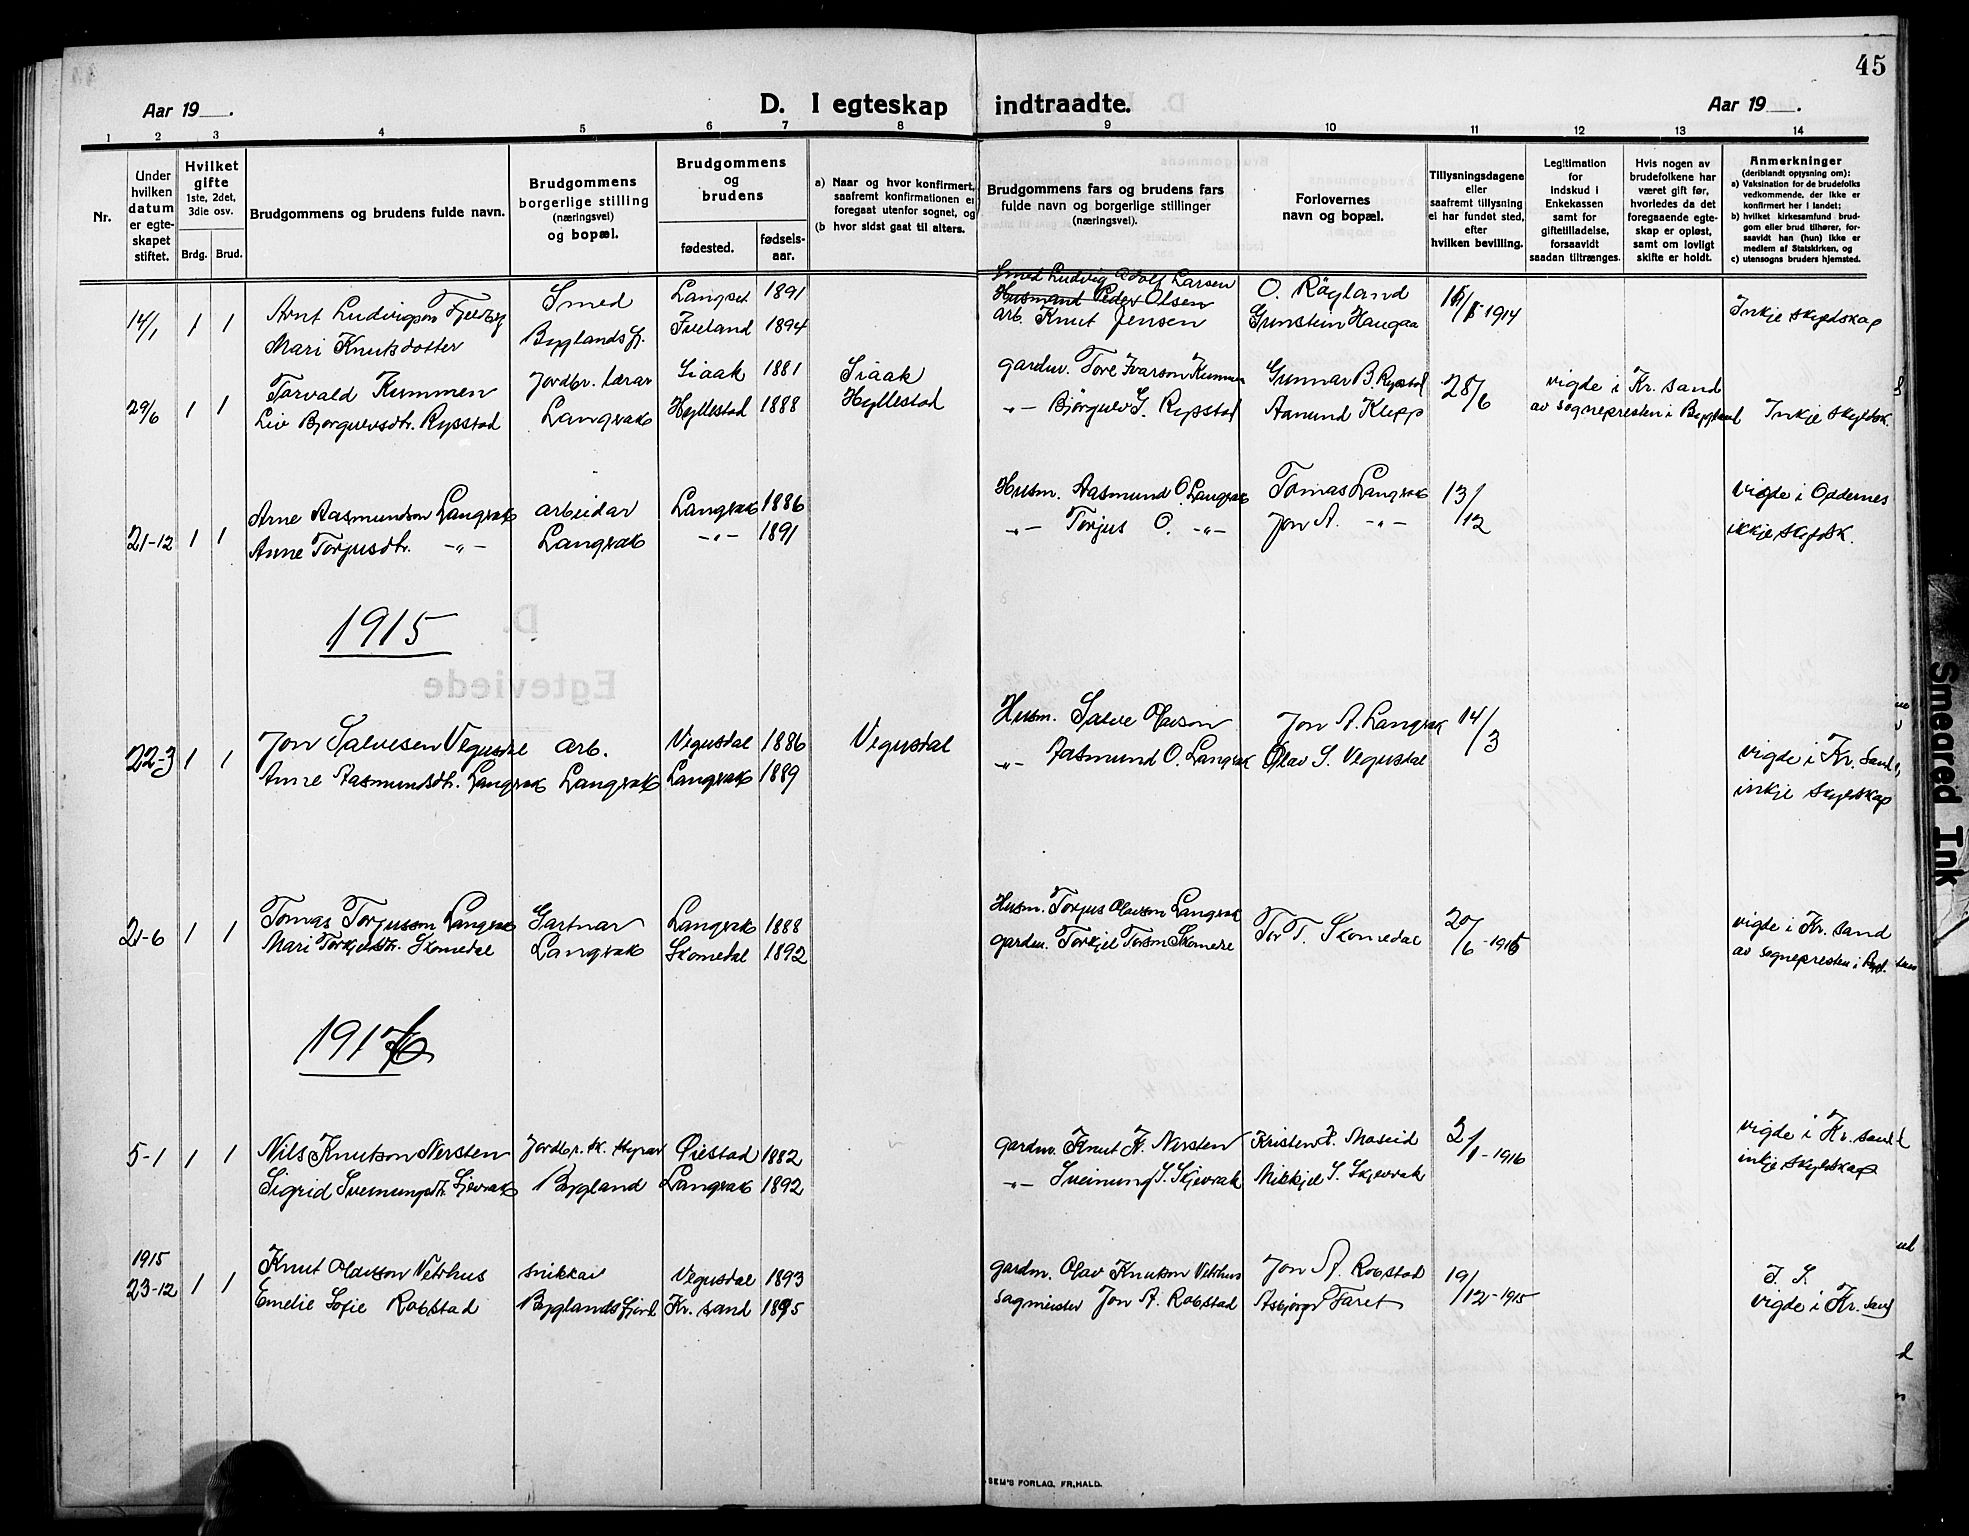 45
Aar 19 .
D. I egteskap indtraadte.
Aar 19 .
1 2 3 4 5 6 7 8 9 10 11 12 13 14
Nr.
Under hvilken datum er egte- skapet stiftet.
Hvilket gifte 1ste, 2det, 3die osv.
Brdg. Brud.
Brudgommens og brudens fulde navn.
Brudgommens borgerlige stilling (næringsvei) og bopæl.
Brudgommens og brudens
fødested.
fødsels- aar.
a) Naar og hvor konfirmert, saafremt konfirmationen ei foregaat utenfor sognet, og
(b hvor sidst gaat til alters.
Brudgommens fars og brudens fars fulde navn og borgerlige stillinger (næringsvei).
Forlovernes navn og bopæl.
Tillysningsdagene eller saafremt tillysning ei har fundet sted, efter hvilken bevilling.
Legitimation for indskud i Enkekassen samt for giftetilladelse, forsaavidt saadan tiltrænges.
Hvis nogen av brudefolkene har været gift før, hvorledes da det foregaaende egte- skap er opløst, samt om lovligt skifte er holdt.
Anmerkninger (deriblandt oplysning om):
a) Vaksination for de brudefolks vedkommende, der ikke er konfirmert her i landet;
b) hvilket kirkesamfund brud- gom eller brud tilhører, for- saavidt han (hun) ikke er medlem af Statskirken, og
c) utensogns bruders hjemsted.
Smed Ludvig Adolf Larsen
14/1 1 1 Arnt Ludvigson Smed Langset 1891 Husmand Peder Olsen O. Røgland 1914 Inkje skyldskap
Mari Knutsdotter Byglandsfj. Iveland 1894 arb. Knut Jensen Grunstein Haugaa
29/6 1 1 Torvald Kummen Jordbr. lærar 1881 gardm. Tore Ivarson Kummen Gunnar B. Rysstad 28/6 vigde i Kr. sand
Liv Bjorgulvsdtr. Rysstad Langvak Hyllestad 1888 Hyllestad -"- Bjørgulv G. Rysstad Aanund Klepp av sognepresten i Bygland Inkje skyldsk.
21-12 1 1 Arne Aasmundson Langvak arbeidar Langvak 1886 Husm. Aasmund O. Langvak Tomas Langvak 13/12 vigde i Oddernes
Anne Torjusdtr. -"- Langvak -"- 1891 -"- Torjus O. -"- Jon A. -"- ikkje skyldsk.
1915
22-3 1 1 Jon Salvesen Vegusdal arb. Vegusdal 1886 Vegusdal Husm. Salve Olavson Jon A. Langvak 14/3 vigde i Kr. Sand
Anne Aasmundsdtr. Langvak Langvak Langvak 1889 -"- Aasmund O. Langvak Olav S. Vegusdal inkje skyldskap
21-6 1 1 Tomas Torjusson Langvak Gartnar Langvak 1888 Husm. Torjus Olavson Langvak Tor T. Skomedal 20/6 - 1915 vigde i Kr. sand
Mari Torkjelsdtr. Skomedal Langvak Skomedal 1892 gardm. Torkjel Torson av sognepresten i
1916
5-1 1 1 Nils Knutson Nersten Øiestad 1882 gardm. Knut N. Nersten Kristen Moseid 2/1 - 1916 vigde i Kr. sand
Sigrid Sveinungsdtr. Bygland Langvak 1892 -"- Sveinung S. Skjevrak Mikkjel S. Skjevrak inkje skyldskap
1915
23-12 1 1 Knut Olavson Vetrhus snikkar Vegusdal 1893 gardm. Olav Knutson Vetrhus Jon A. Robstad 19/12 - 1915 I. S.
Emelie Sofie Robstad Byglandsfjord Kr. sand 1895 sagmeister Jon A. Robstad Asbjørg Faret vigde i Kr. sand
SEM'S FORLAG, FR.HALD.
Smeared Ink